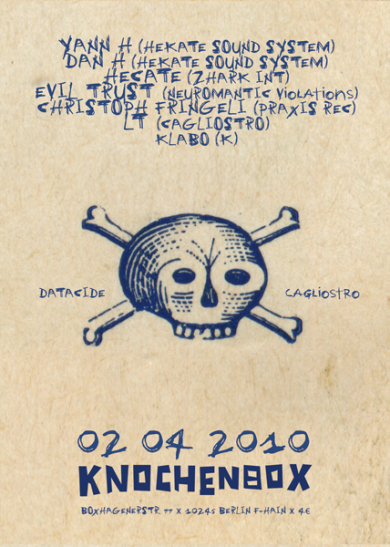 YANN H (HEKATE SOUND SYSTEM)
DAN H (HEKATE SOUND SYSTEM)
HECATE (ZHARK INT)
EVIL TRUST (NEUROMANTIC VIOLATIONS)
CHRISTOPH FRINGELI (PRAXIS REC)
LT (CAGLIOSTRO)
KLABO (K)
DATACIDE
CAGLIOSTRO
02 04 2010
KNOCHENBOX
BOXHAGENERSTR. 77 X 10245 BERLIN F-HAIN X 4€